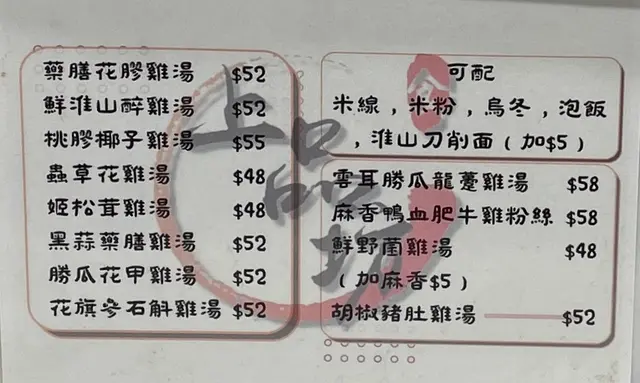 藥膳花膠雞湯 $52
鮮淮山醉雞湯 $52
桃膠椰子雞湯 $55
蟲草花雞湯 $48
姬松茸雞湯 $48
黑蒜藥膳雞湯 $52
勝瓜花甲雞湯 $52
花旗參石斛雞湯 $52
可配
米線，米粉，烏冬，泡飯
，淮山刀削面（加$5）
雲耳勝瓜龍躉雞湯 $58
麻香鴨血肥牛雞粉絲 $58
鮮野菌雞湯 $48
（加麻香$5）
胡椒豬肚雞湯 $52
上品坊